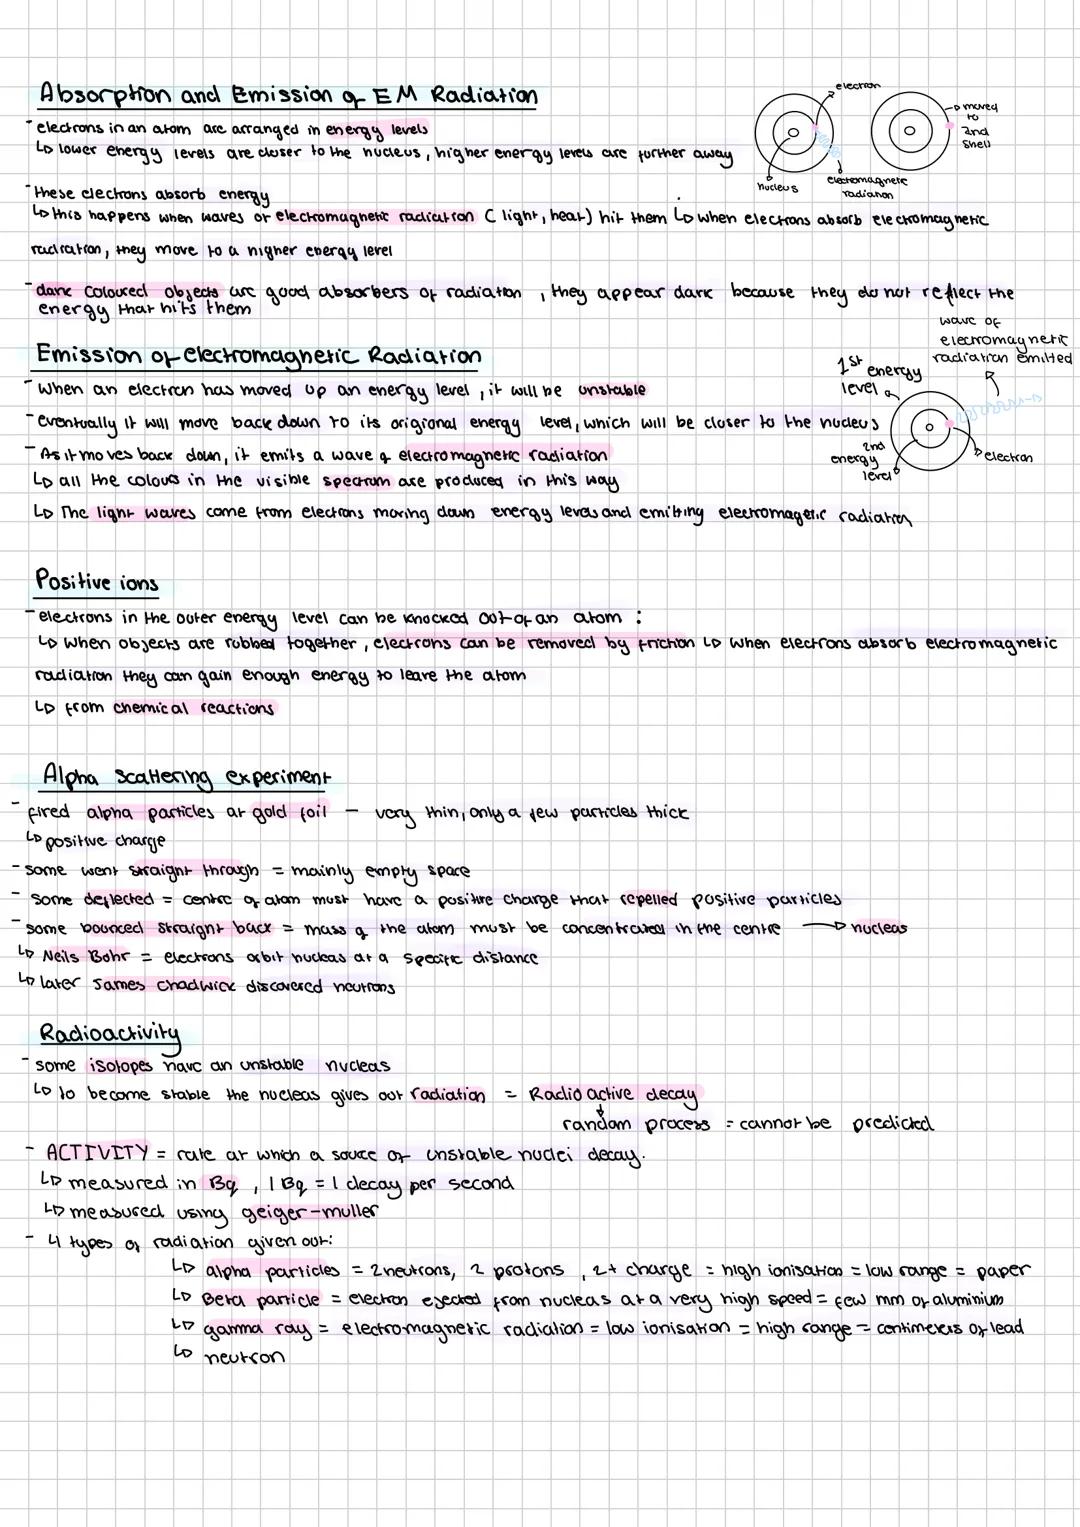 Absorption and Emission of EM Radiation
electron
- electrons in an atom are arranged in energy levels
↳ lower energy levels are closer to the nucleus, higher energy levels are further away
moved
to
2nd
shell
nucleus
electromagnetic
radiation
- these electrons absorb energy
↳ this happens when waves of electromagnetic radiation (light, heat) hit them ↳ when electrons absorb electromagnetic
radiation, they move to a higher energy level
- dark coloured objects are good absorbers of radiation, they appear dark because they do not reflect the
energy that hits them
wave of
electromagnetic
radiation emitted
Emission of electromagnetic Radiation
1st energy
level
- When an electron has moved up an energy level, it will be unstable
- eventually it will move back down to its origional energy level, which will be closer to the nucleus
2nd
energy
level
electron
- As it moves back down, it emits a wave of electromagnetic radiation
↳ all the colours in the visible spectrum are produced in this way
↳ The light waves come from electrons moving down energy levels and emitting electromagetic radiation
Positive ions
- electrons in the outer energy level can be knocked out of an atom :
↳ When objects are rubbed together, electrons can be removed by friction ↳ When electrons absorb electromagnetic
radiation they can gain enough energy to leave the atom
↳ from chemical reactions
Alpha scattering experiment
- fired alpha particles at gold foil - very thin, only a few particles thick
↳ positive charge
- some went straight through = mainly empty space
- some deflected = centre of atom must have a positive charge that repelled positive particles
- some bounced straight back = mass of the atom must be concentrated in the centre → nucleas
↳ Neils Bohr = electrons orbit nucleas at a specific distance
↳ later James Chadwick discovered neutrons
Radioactivity
- some isotopes have an unstable nucleas
↳ to become stable the nucleas gives out radiation = Radioactive decay
random process = cannot be predicted
- ACTIVITY = rate at which a souce of unstable nuclei decay.
↳ measured in Bq, 1 Bq = 1 decay per second
↳ measured using geiger-muller
- 4 types of radiation given out:
↳ alpha particles = 2 neutrons, 2 protons, 2+ charge = high ionisation = low range = paper
↳ Beta particle = electron ejected from nucleas at a very high speed = few mm of aluminium
↳ gamma ray = electromagnetic radiation = low ionisation = high range = centimeters of lead
↳ neutron